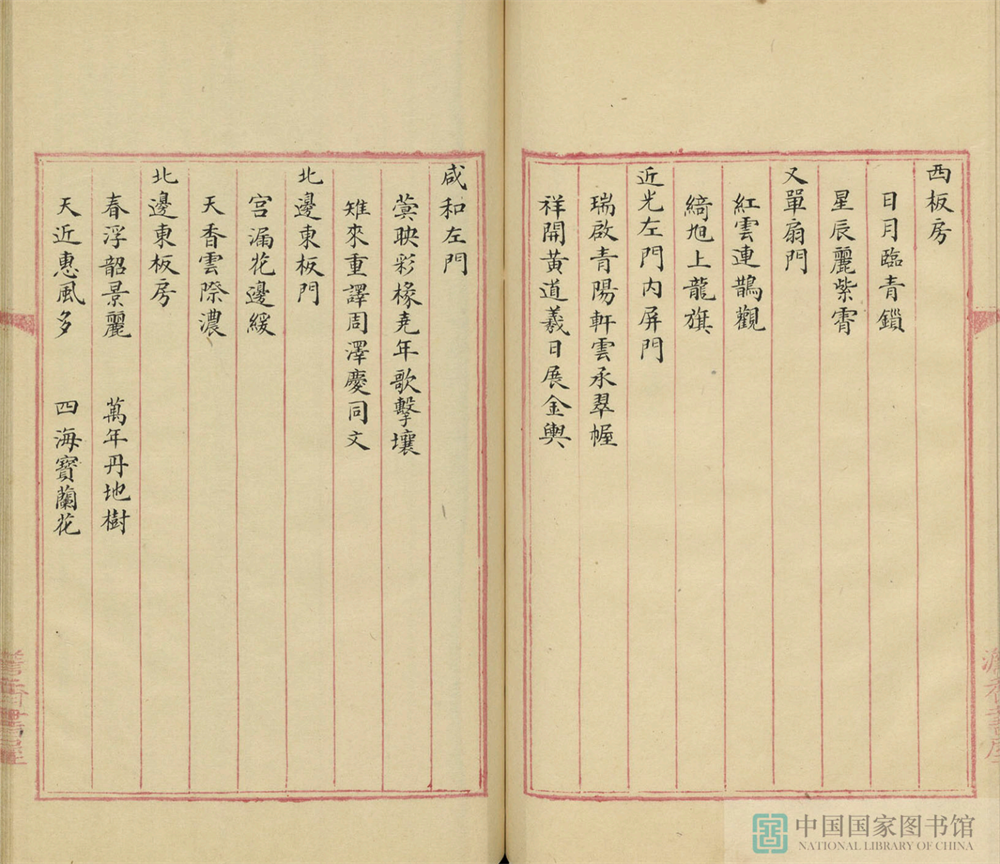 西板房
日月臨青鎖
星辰麗紫霄
又單扇門
紅雲連鵲觀
綺旭上龍旗
近光左門内屏門
瑞啟青陽軒雲承翠幄
祥開黃道羲日展金輿
咸和左門
蓂映彩椽堯年歌擊壤
雉來重譯周澤慶同文
北邊東板門
宮漏花邊緩
天香雲際濃
北邊東板房
春浮韶景麗 萬年丹地樹
天近惠風多 四海寶蘭花
中国国家图书馆
NATIONAL LIBRARY OF CHINA